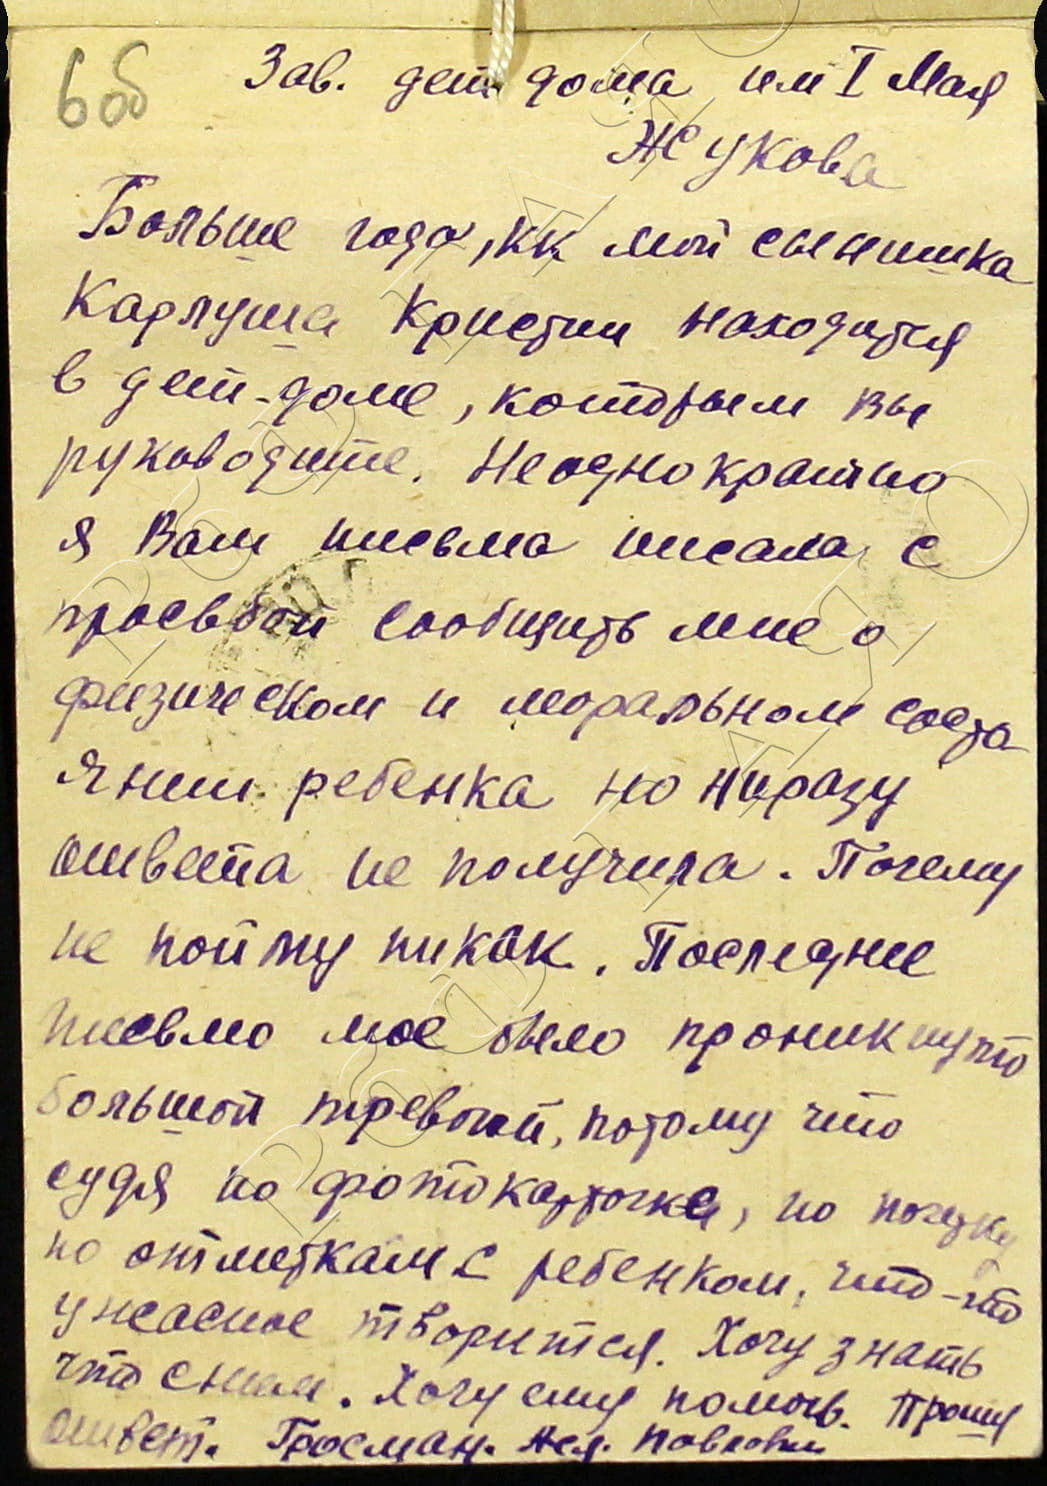 6 об
Зав. дет дома им I Мая
Жукова
Больше года, кк мой сынишка
Карлуша Кристин находится
в дет-доме, которым вы
руководите. Неоднократно
я Вам письма писала с
просьбой сообщить мне о
физическом и моральном состо
янии ребенка но ниразу
ответа не получила. Почему
не пойму никак. Последнее
письмо мое было проникнуто
большой тревогой, потому что
судя по фотокарточке, по почерку
по отметкам с ребенком, что-то
ужасное творится. Хочу знать
что с ним. Хочу ему помочь. Прошу
ответ. Гросман.
РГАСПИ